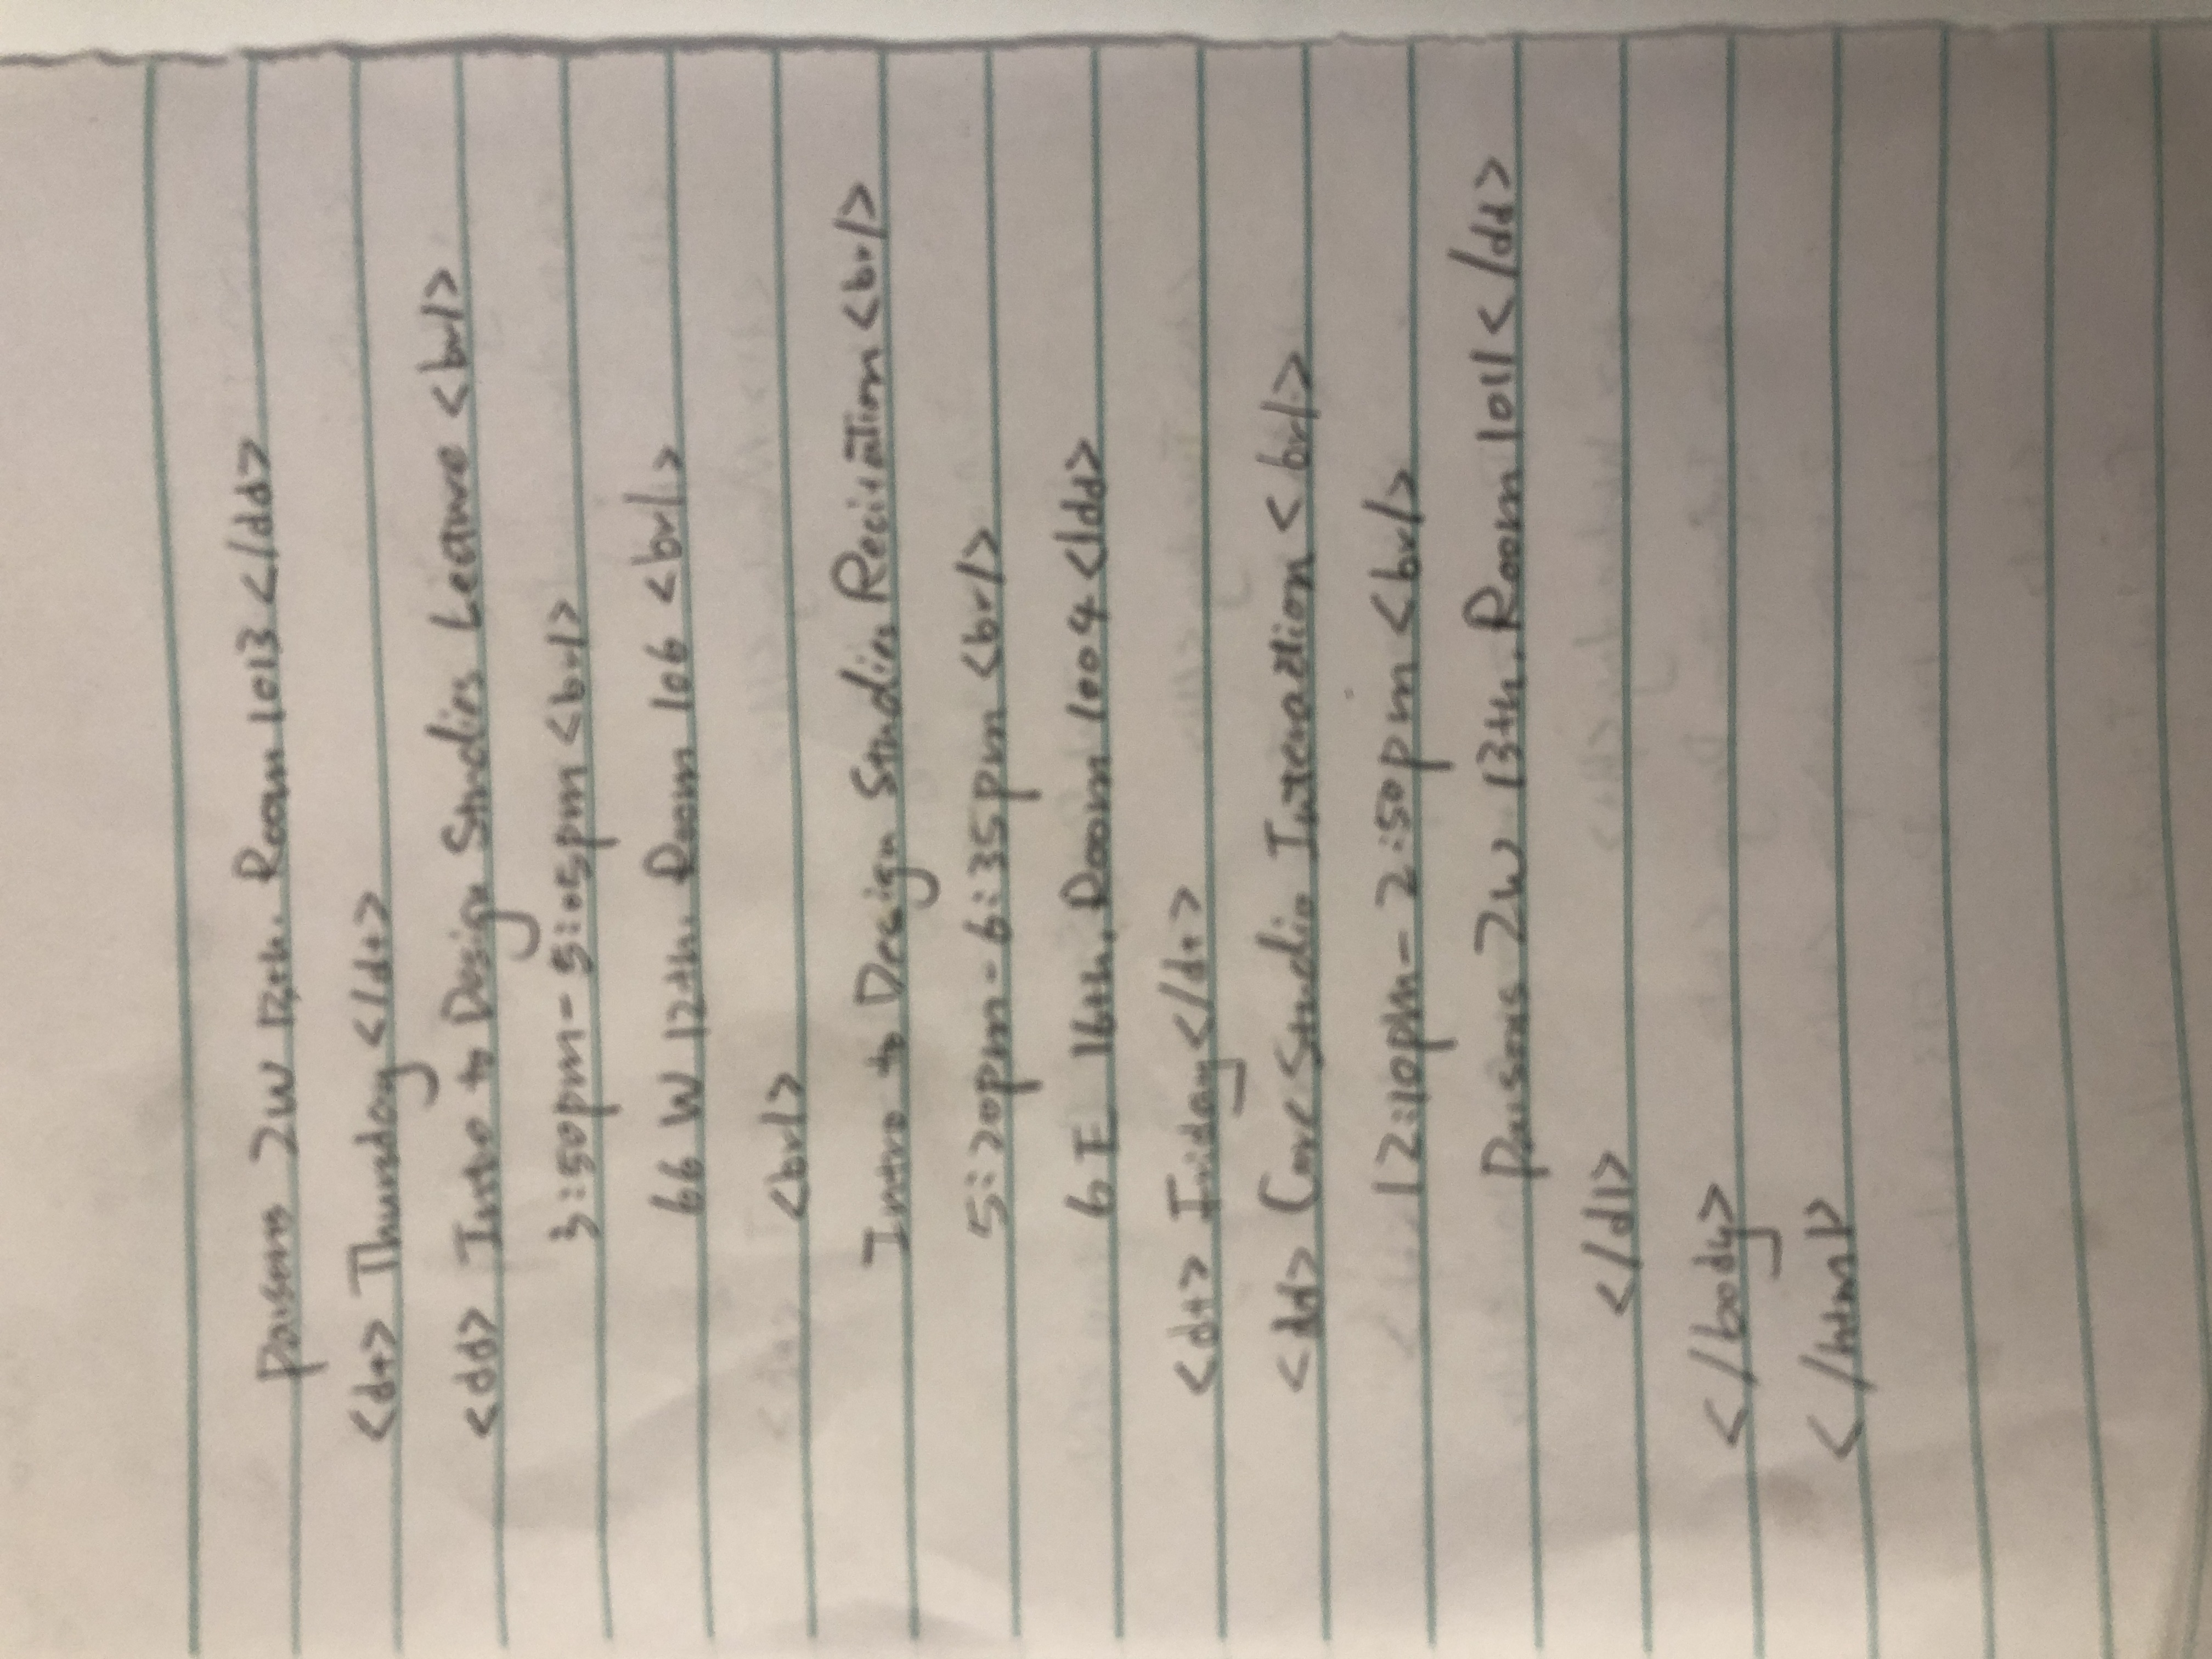 Parsons 2W 13th. Room 1013 </dd>
<dt> Thursday </dt>
<dd> Intro to Design Studies Lecture <br/>
3:50pm - 5:05pm <br/>
66 W 12th. Room 106 <br/>
<br/>
Intro to Design Studies Recitation <br/>
5:20pm - 6:35pm <br/>
6 E 16th. Room 1004 </dd>
<dt> Friday </dt>
<dd> Core Studio Interaction <br/>
12:10pm - 2:50pm <br/>
Parsons 2W 13th. Room 1011 </dd>
</dl>
</body>
</html>